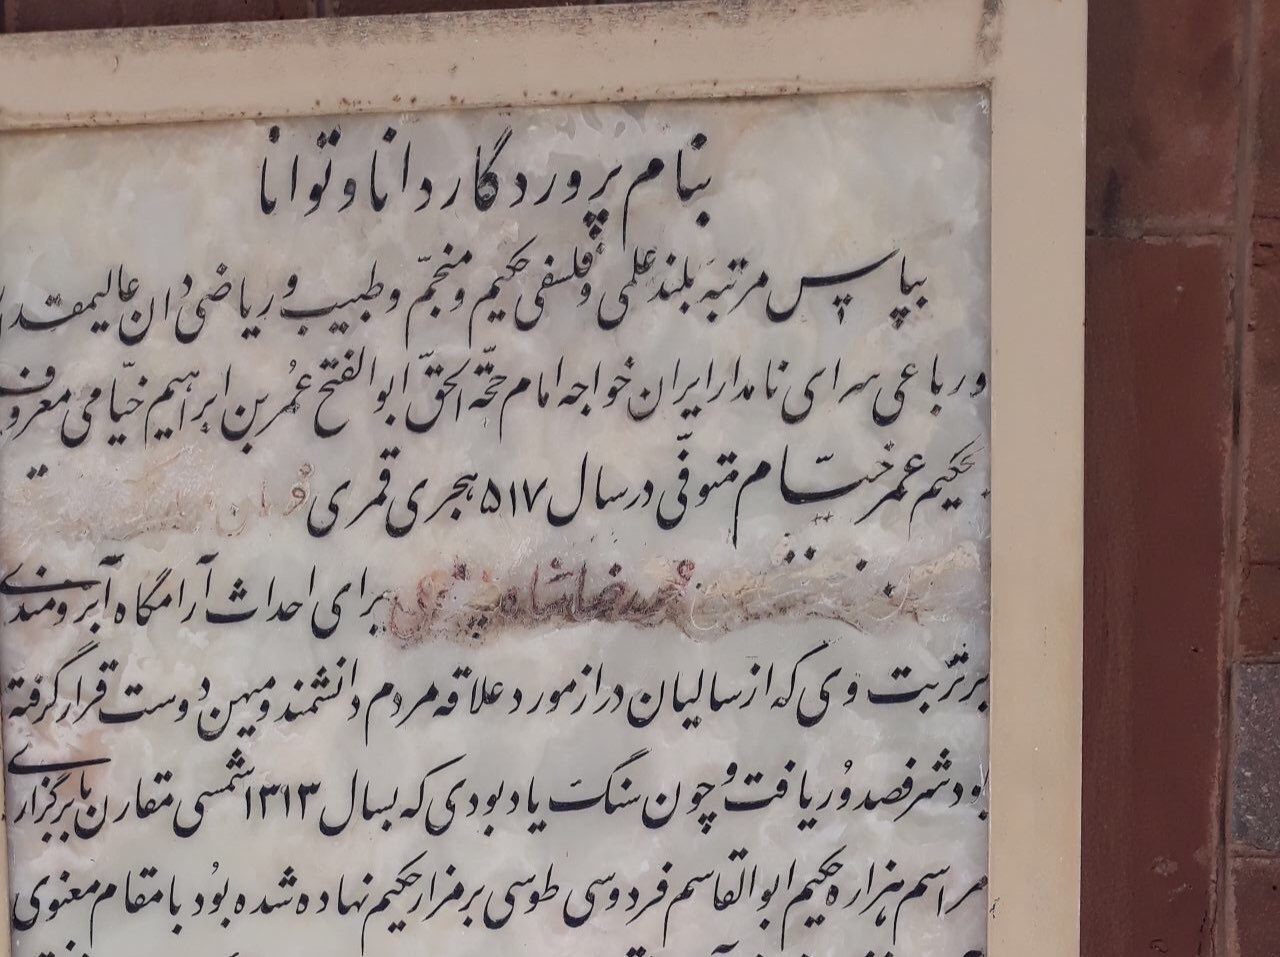 بنام پروردگار دانا و توانا
بپاس مرتبه بلند علمی و فلسفی حکیم و منجّم و طبیب و ریاضی دان عالیمقدار
و رباعی سرای نامدار ایران خواجه امام حجّة الحقّ ابوالفتح عُمر بن ابراهیم خیّامی معروف
بحکیم عمر خیّام متوفّی در سال ۵۱۷ هجری قمری فرمان
محمدرضا شاه پهلوی برای احداث آرامگاه آبرومندی
بر تربت وی که از سالیان دراز مورد علاقه مردم دانشمند و میهن دوست قرار گرفته
بود شرفصدور یافت و چون سنگ یادبودی که بسال ۱۳۱۳ شمسی مقارن با برگزاری
مراسم هزاره حکیم ابوالقاسم فردوسی طوسی بر مزار حکیم نهاده شده بود با مقام معنوی